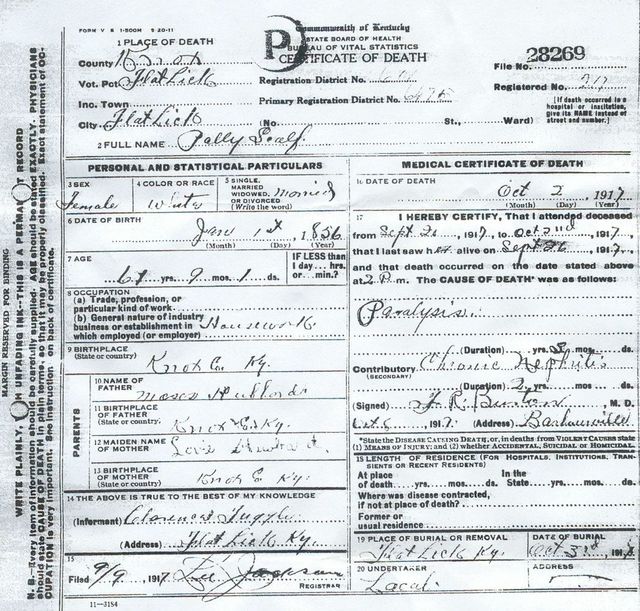 FORM V S 1-500M 5 20-11
Commonwealth of Kentucky
STATE BOARD OF HEALTH
BUREAU OF VITAL STATISTICS
CERTIFICATE OF DEATH
P
1 PLACE OF DEATH
County Knox
Vot. Pct. Flat Lick
Inc. Town
City Flat Lick (No. St., Ward)
Registration District No.
Primary Registration District No.
File No. 28269
Registered No.
[If death occurred in a hospital or institution, give its NAME instead of street and number.]
2 FULL NAME Polly Scalf
PERSONAL AND STATISTICAL PARTICULARS
3 SEX
Female
4 COLOR OR RACE
White
5 SINGLE, MARRIED WIDOWED, OR DIVORCED (Write the word) Married
6 DATE OF BIRTH
Jany 1st, 1856
(Month) (Day) (Year)
7 AGE
61 yrs. 9 mos. 1 ds.
IF LESS than 1 day... hrs. or min.?
8 OCCUPATION
(a) Trade, profession, or particular kind of work
(b) General nature of industry business or establishment in which employed (or employer) Housework
9 BIRTHPLACE
(State or country)
Knox Ky.
PARENTS
10 NAME OF FATHER
Moses
11 BIRTHPLACE OF FATHER
(State or country)
Knox Ky.
12 MAIDEN NAME OF MOTHER
13 BIRTHPLACE OF MOTHER
(State or country)
Knox Ky.
14 THE ABOVE IS TRUE TO THE BEST OF MY KNOWLEDGE
(Informant) Clarence Tuggle
(Address) Flat Lick Ky.
15
Filed 9/9, 1917 Jackson
REGISTRAR
11-3184
MEDICAL CERTIFICATE OF DEATH
16 DATE OF DEATH
Oct 2, 1917
(Month) (Day) (Year)
17 I HEREBY CERTIFY, That I attended deceased
from Sept 20, 1917, to Oct 2nd, 1917,
that I last saw her alive on Sept 26, 1917,
and that death occurred on the date stated above
at 2 P.m. The CAUSE OF DEATH* was as follows:
Paralysis.
(Duration) yrs. mos. ds.
Contributory Chronic Nephritis
(SECONDARY)
(Duration) 2 yrs. mos. ds.
(Signed) Burton, M. D.
Oct 6, 1917. (Address) Barbourville
*State the DISEASE CAUSING DEATH, or, in deaths from VIOLENT CAUSES state (1) MEANS OF INJURY; and (2) whether ACCIDENTAL, SUICIDAL or HOMICIDAL.
18 LENGTH OF RESIDENCE (FOR HOSPITALS, INSTITUTIONS, TRANSIENTS OR RECENT RESIDENTS)
At place of death yrs. mos. ds. In the State yrs. mos. ds.
Where was disease contracted, if not at place of death?
Former or usual residence
19 PLACE OF BURIAL OR REMOVAL
Flat Lick Ky.
DATE OF BURIAL
Oct 3rd, 1917
20 UNDERTAKER
Local.
ADDRESS
MARGIN RESERVED FOR BINDING
WRITE PLAINLY, WITH UNFADING INK—THIS IS A PERMANENT RECORD
N. B.—Every item of information should be carefully supplied. AGE should be stated EXACTLY. PHYSICIANS
should state CAUSE OF DEATH in plain terms, so that it may be properly classified. Exact statement of OC-
CUPATION is very important. See instruction on back of certificate.